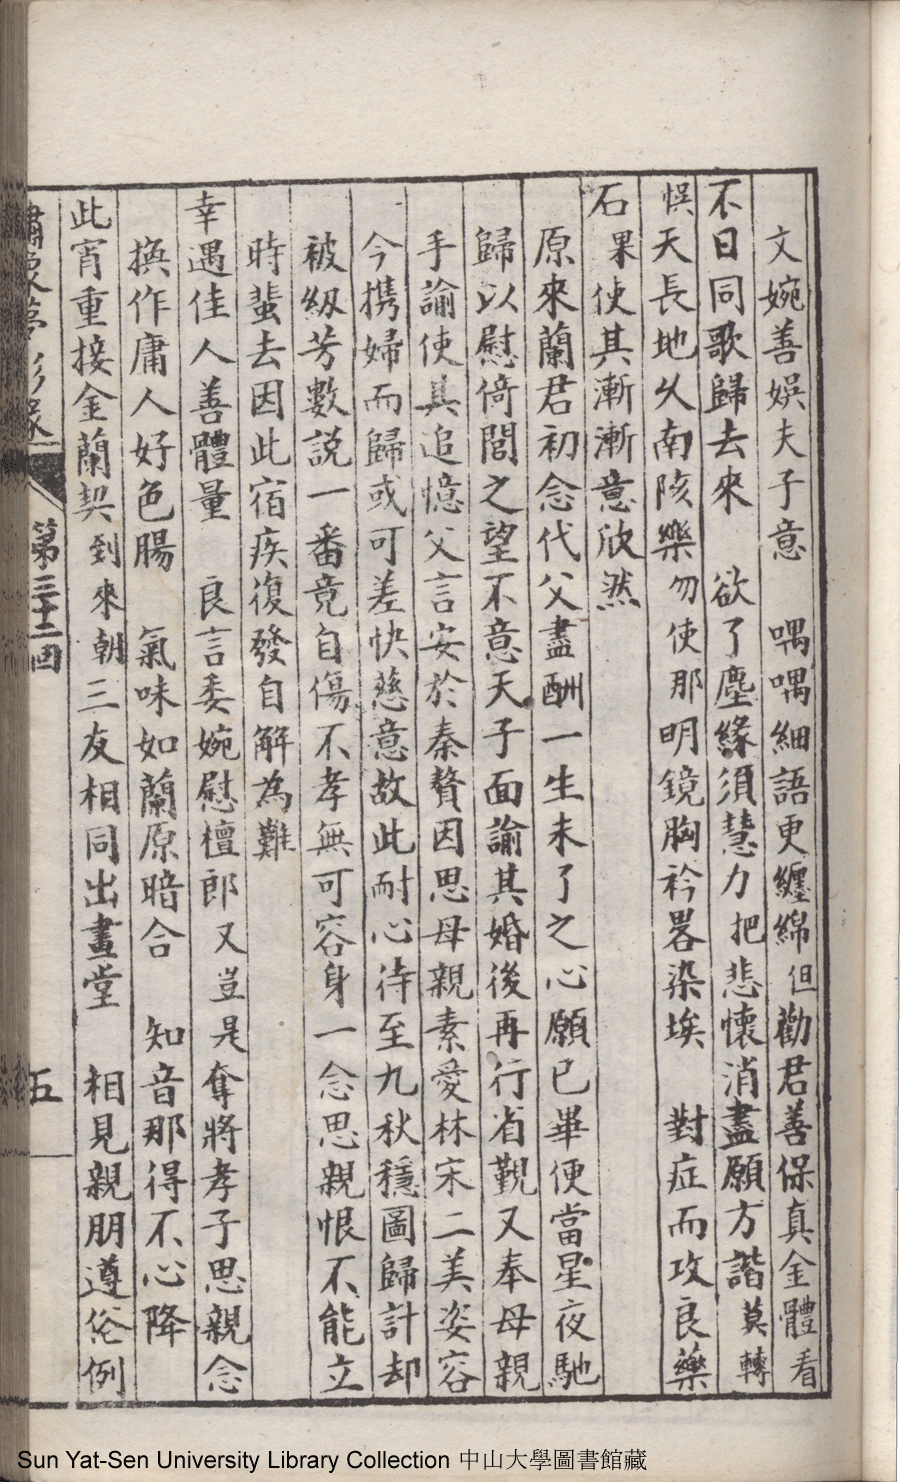 文婉善娛夫子意　喁喁細語更纏綿但勸君善保真金體看
不日同歌歸去來　欲了塵緣須慧力把悲懷消盡願方諧莫轉
悞天長地久南陔樂勿使那明鏡胸衿畧染埃　對症而攻良藥
石果使其漸漸意欣然
原來蘭君初念代父盡酬一生未了之心願已畢便當星夜馳
歸以慰倚閭之望不意天子面諭其婚後再行省覲又奉母親
手諭使其追憶父言安於秦贅因思母親素愛林宋二美姿容
今携婦而歸或可差快慈意故此耐心待至九秋穩圖歸計却
被紉芳數說一番竟自傷不孝無可容身一念思親恨不能立
時蜚去因此宿疾復發自解為難
幸遇佳人善體量　良言委婉慰檀郎又豈是奪將孝子思親念
換作庸人好色腸　氣味如蘭原暗合　知音那得不心降
此宵重接金蘭契到來朝三友相同出畫堂　相見親朋遵俗例
第三十二回　五
Sun Yat-Sen University Library Collection 中山大學圖書館藏